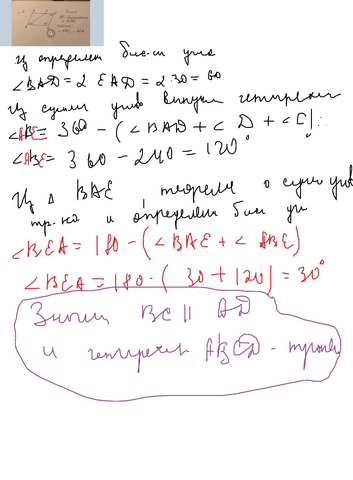 Из определен бис-си угла
∠BAD = 2 EAD = 2·30 = 60
Из суммы углов выпукл четырехуг
∠ABE = 360 - (∠BAD + ∠D + ∠C):
∠ABE = 360 - 240 = 120°
Из Δ BAE, теорема о сумм углов
тр-ка и определен бис уг
∠BEA = 180 - (∠BAE + ∠ABE)
∠BEA = 180 - (30 + 120) = 30°
Значит BC || AD
и четырехуг ABCD - трапец